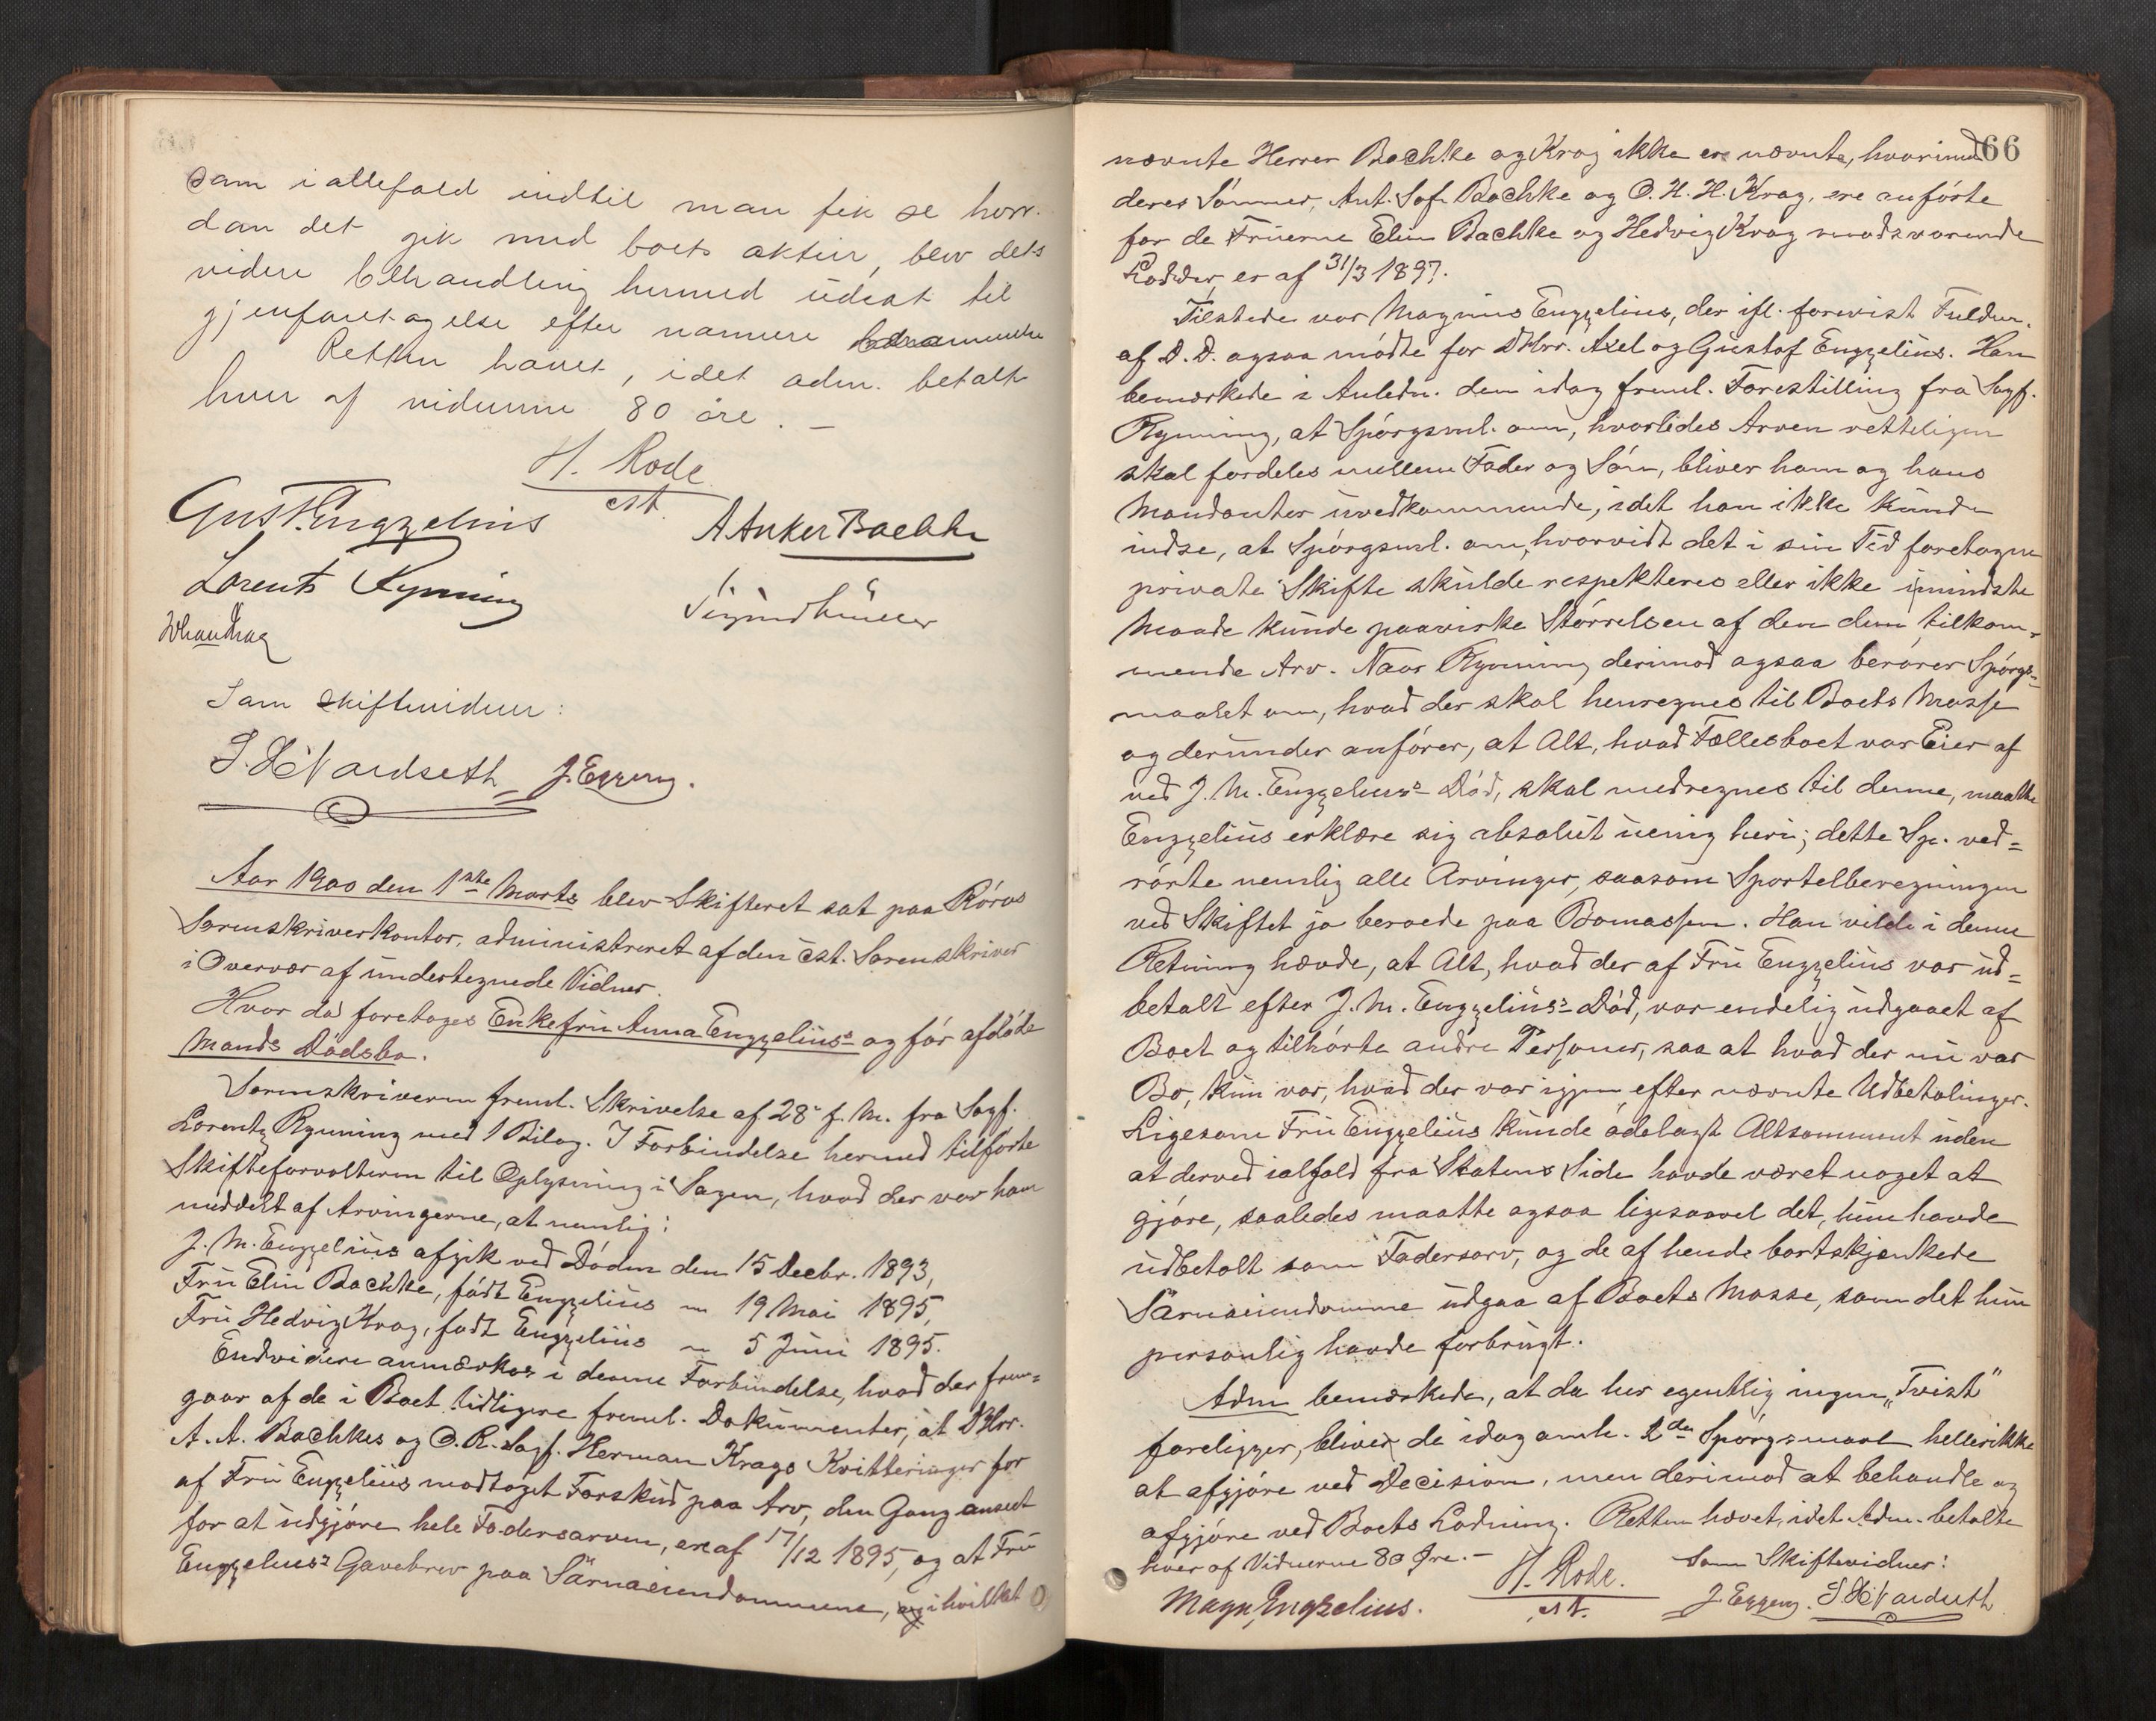 som i allefald indtil man fik se hvor-
dan det gik med boets aktier, blev dets
videre behandling hermed udsat til
gjenforetagelse efter nærmere
Retten hævet, idet adm. betalte
hver af vidnerne 80 øre. –
H. Rode
cst.
Gust. Engzelius
A Anker Bachke
Lorentz Rynning
Sigurd Müller
Som skiftevidner:
S. H. Nardseth J. Eggen.
Aar 1900 den 1ste Marts blev Skifteret sat paa Röros
Sorenskriverkontor, administreret af den cst. Sorenskriver
i Overvær af undertegnede Vidner.
Hvor da foretoges Enkefru Anna Engzelius's og før afdøde
Mands Dødsbo.
Sorenskriveren freml. Skrivelse af 28' f. M. fra Sagf.
Lorentz Rynning med 1 Bilag. I Forbindelse hermed tilførte
Skifteforvalteren til Oplysning i Sagen, hvad der var ham
meddelt af Arvingerne, at nemlig:
J. M. Engzelius afgik ved Døden den 15 Decbr. 1893,
Fru Elin Bachke, født Engzelius " 19 Mai 1895,
Fru Hedvig Krag, født Engzelius " 5 Juni 1895.
Endvidere anmærkes i denne Forbindelse, hvad der frem=
gaar af de i Boet tidligere freml. Dokumenter, at DHrr.
A. A. Bachkes og O. R. Sagf. Herman Krags Kvitteringer for
af Fru Engzelius modtaget Forskud paa Arv, den Gang anseet
for at udgjøre hele Fædersarven, er af 17/12 1895, og at Fru
Engzelius's Gavebrev paa Särnaeiendommene, i hvilket
66
nævnte Herrer Bachke og Krag ikke ere nævnte, hvorimod
deres Sønner, Ant. Sof. Bachke og O. H. H. Krag, ere anførte
for de Fruerne Elin Bachke og Hedvig Krag modsvarende
Lodder, er af 31/3 1897.
Tilstede var Magnus Engzelius, der ifl. forevist Fuldm.
af D. D. ogsaa mødte for DHrr. Axel og Gustaf Engzelius. Han
bemærkede i Anledn. den idag freml. Forestilling fra Sagf.
Rynning, at Spørgsml. om, hvorledes Arven retteligen
skal fordeles mellem Fader og Søn, bliver ham og hans
Mandanter uvedkommende, idet han ikke kunde
indse, at Spørgsml. om, hvorvidt det i sin Tid foretagne
private Skifte skulde respekteres eller ikke i mindste
Maade kunde paavirke Størrelsen af den dem tilkom-
mende Arv. Naar Rynning derimod ogsaa berører Spørgs=
maalet om, hvad der skal henregnes til Boets Masse
og derunder anfører, at Alt, hvad Fællesboet var Eier af
ved J. M. Engzelius's Død, skal medregnes til denne, maatte
Engzelius erklære sig absolut uenig heri; dette Sp. ved=
rørte nemlig alle Arvinger, saasom Sportelberegningen
ved Skiftet jo beroede paa Bomassen. Han vilde i denne
Retning hævde, at Alt, hvad der af Fru Engzelius var ud=
betalt efter J. M. Engzelius's Død, var endelig udgaaet af
Boet og tilhørte andre Personer, saa at hvad der nu var
Bo, kun var, hvad der var igjen efter nævnte Udbetalinger.
Ligesom Fru Engzelius kunde ødelagt Altsammen uden
at derved ialfald fra Statens Side havde været noget at
gjøre, saaledes maatte ogsaa ligesaavel det, hun havde
udbetalt som Fædersarv, og de af hende bortskjænkede
Särnaeiendomme udgaa af Boets Masse, som det hun
personlig havde forbrugt.
Adm bemærkede, at da her egentlig ingen „Tvist"
foreligger, bliver de idag omh. 2de Spørgsmaal heller ikke
at afgjøre ved Decision, men derimod at behandle og
afgjøre ved Boets Lodning. Retten hævet, idet Adm. betalte
hver af Vidnerne 80 Øre. –
H. Rode.
cst.
Som Skiftevidner:
Magn. Engzelius.
J. Eggen. S H Nardseth